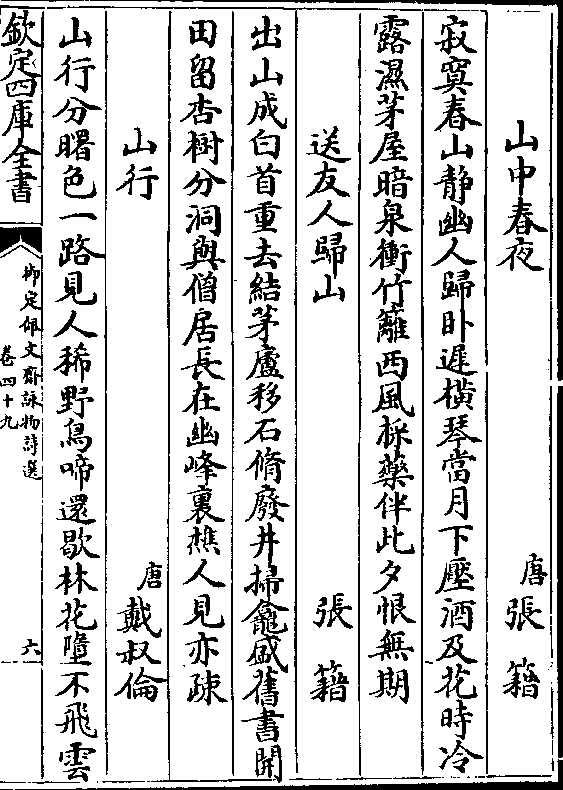 山中春夜　唐張籍
寂寞春山静幽人歸卧遲橫琴當月下壓酒及花時冷
露濕茅屋暗泉衝竹籬西風採藥伴此夕恨無期
送友人歸山　張籍
出山成白首重去結茅廬移石脩廢井掃龕盛舊書開
田留杏樹分洞與僧居長在幽峰裏樵人見亦疎
山行　唐戴叔倫
山行分曙色一路見人稀野鳥啼還歇林花墮不飛雲
欽定四庫全書
御定佩文齋詠物詩選
卷四十九
六